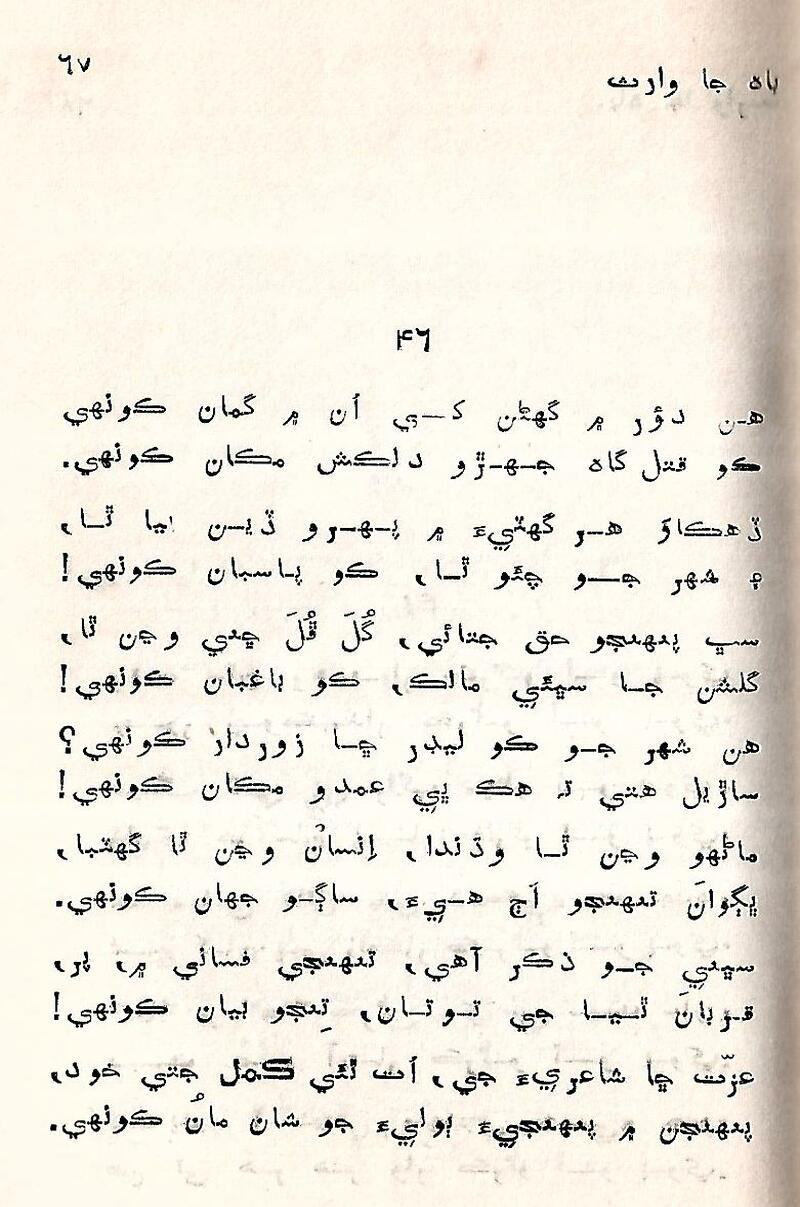 باهه جا وارث
٦٧
۴٦
هن دؤر ۾ گهڻن کي اُن ۾ گمان ڪونهي
ڪو قتل گاهه جهڙو دلڪش مڪان ڪونهي.
ڏهڪاوَ هر گهٽيءَ ۾ پهرو ڏين پيا ٿا،
۽ شهر جو چئو ٿا، ڪو پاسبان ڪونهي!
سڀ پنهنجو حق جتائي، گُلَ ڦُلَ ڇني وڃن ٿا،
گلشن جا سڀئي مالڪ، ڪو باغبان ڪونهي!
هن شهر جو ڪو ليڊر ڇا زوردار ڪونهي؟
ساڙيل هتي تہ هڪ ڀي عمدو مڪان ڪونهي!
ماڻهو وڃن ٿا وڌندا، اِنسان وڃن ٿا گهٽبا،
ڀڳوانَ تنهنجو اڄ هيءَ، ساڳو جهان ڪونهي.
سڀني جو ذڪر آهي، تنهنجي فساني ۾، پر،
قربانَ ٿيا جي توتان، تِنجو بيان ڪونهي!
عزّت ڇا شاعريءَ جي، اُت ٿئي ڪمل جتي خود،
پنهنجن ۾ پنهنجيءَ ٻوليءَ جو شان مانُ ڪونهي.